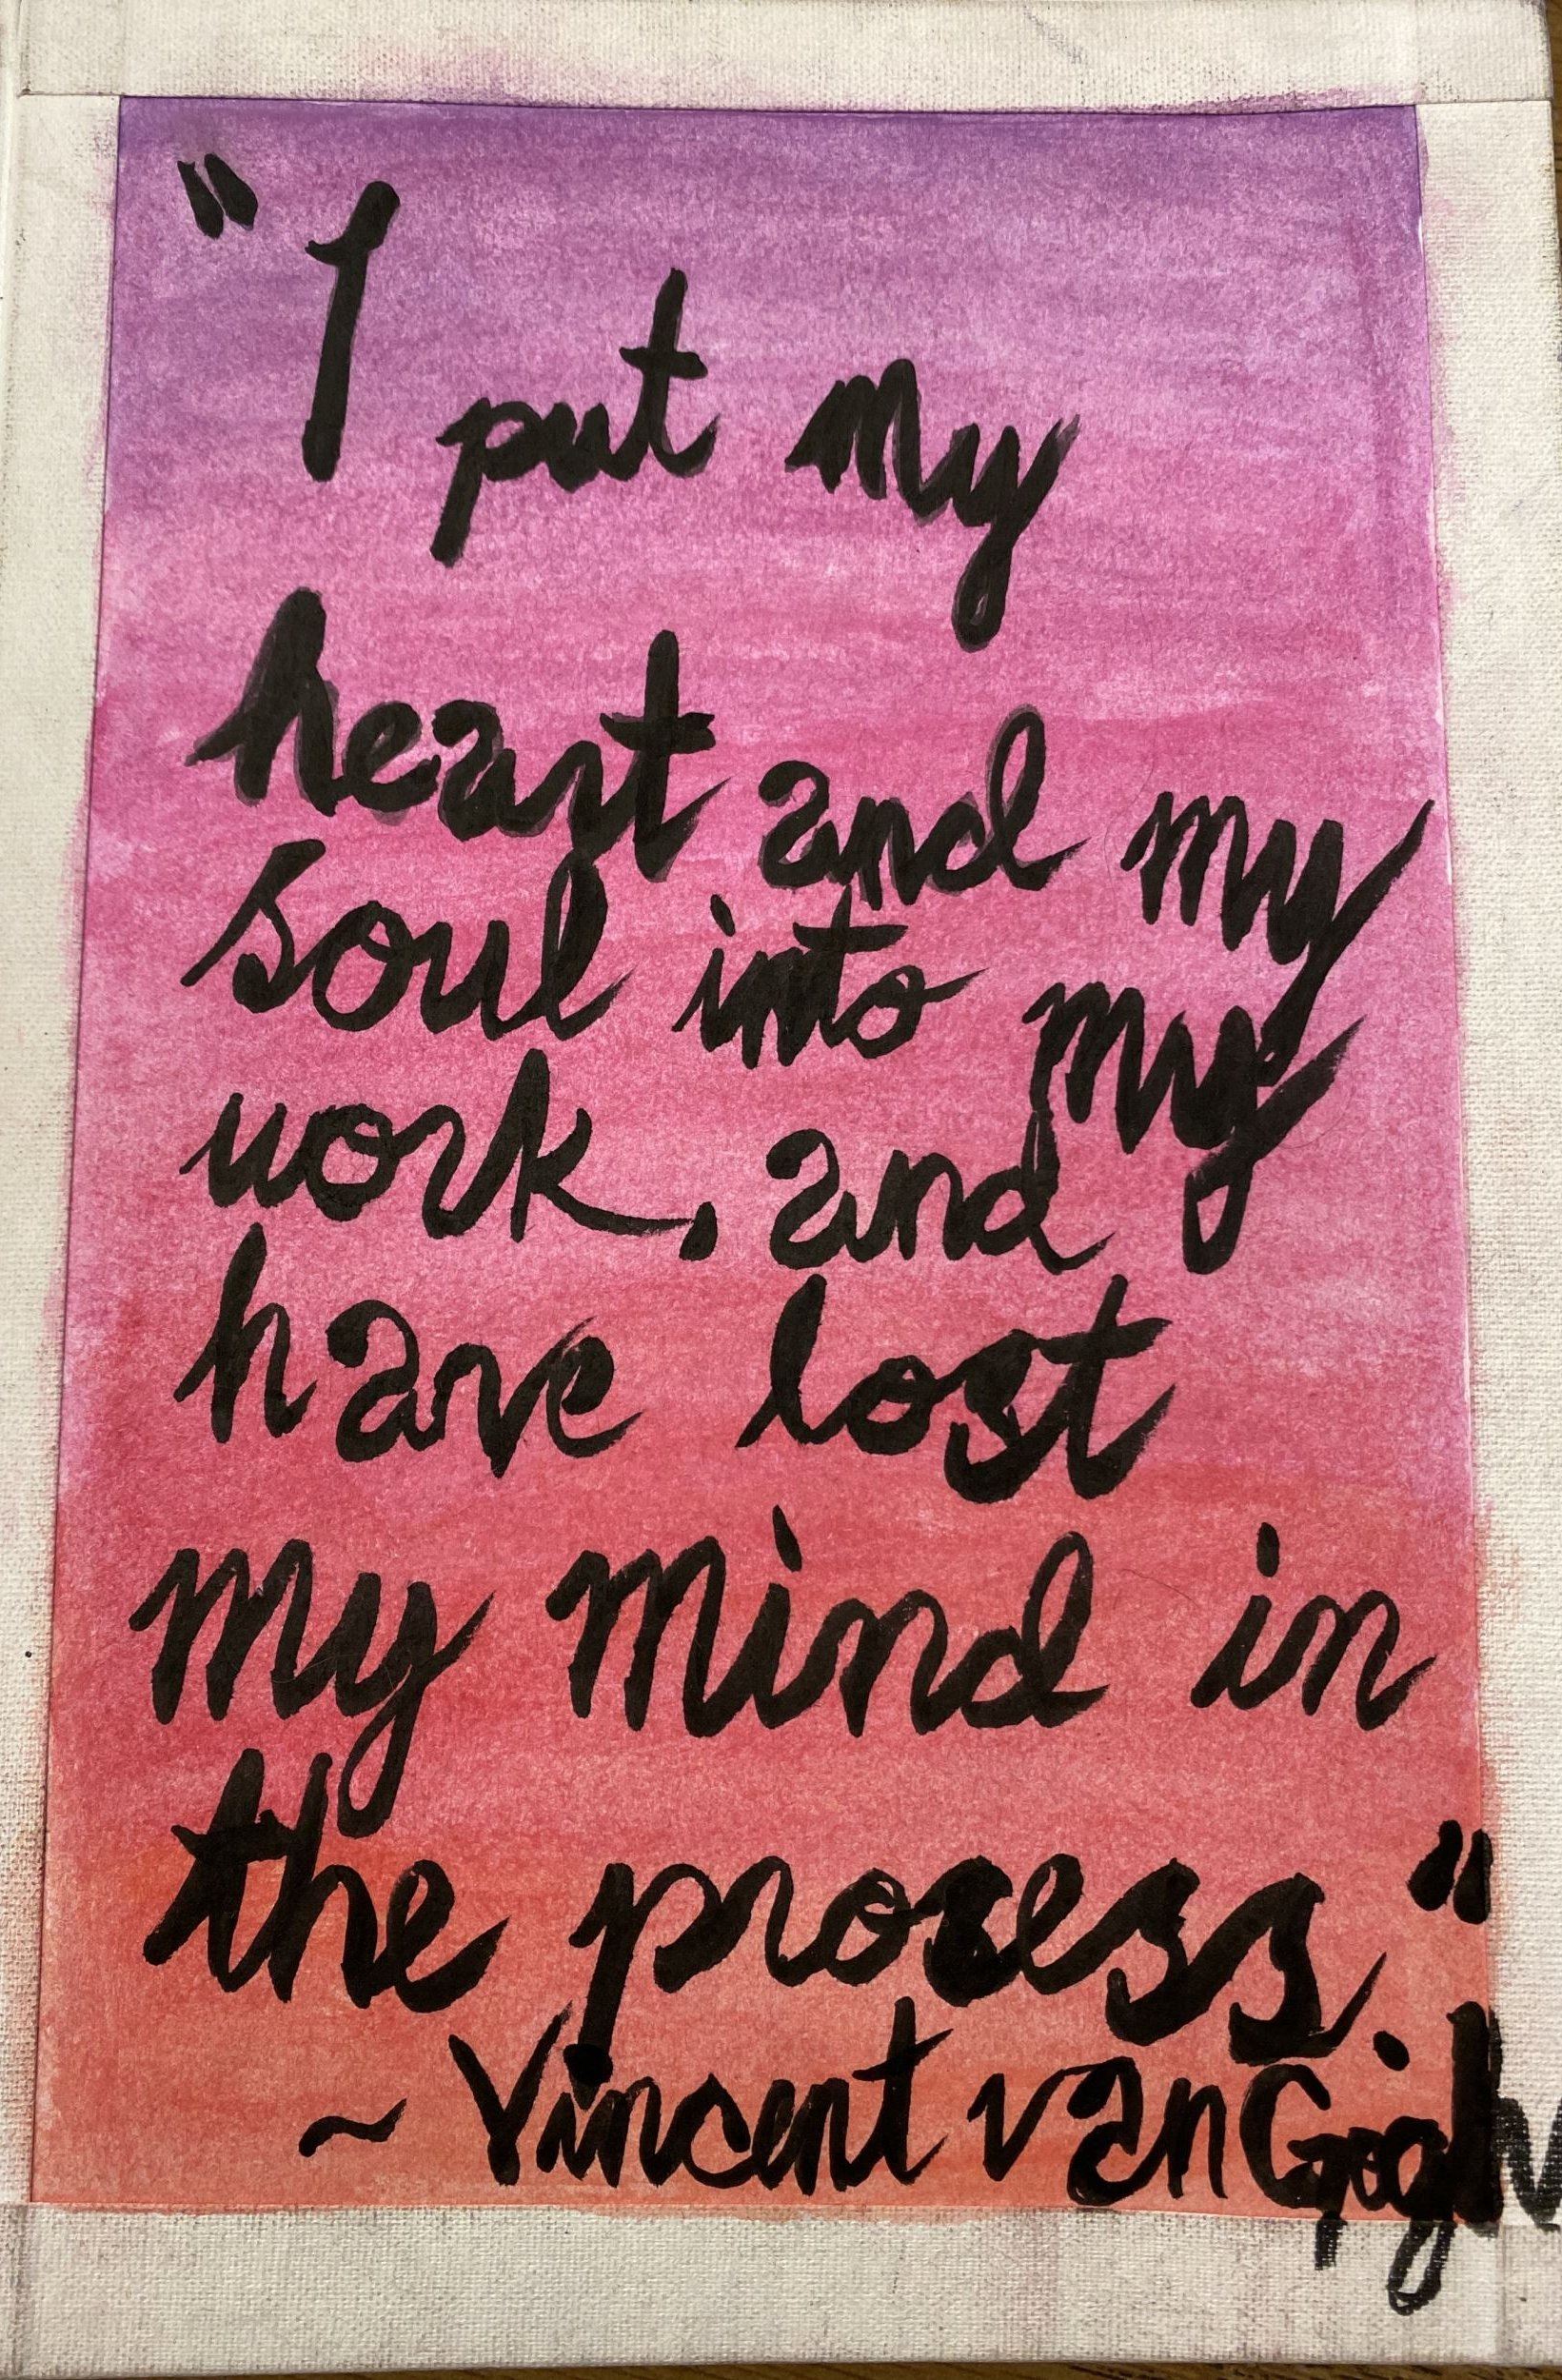 "I put my
heart and my
soul into my
work, and
have lost
my mind in
the process."
~ Vincent van Gogh